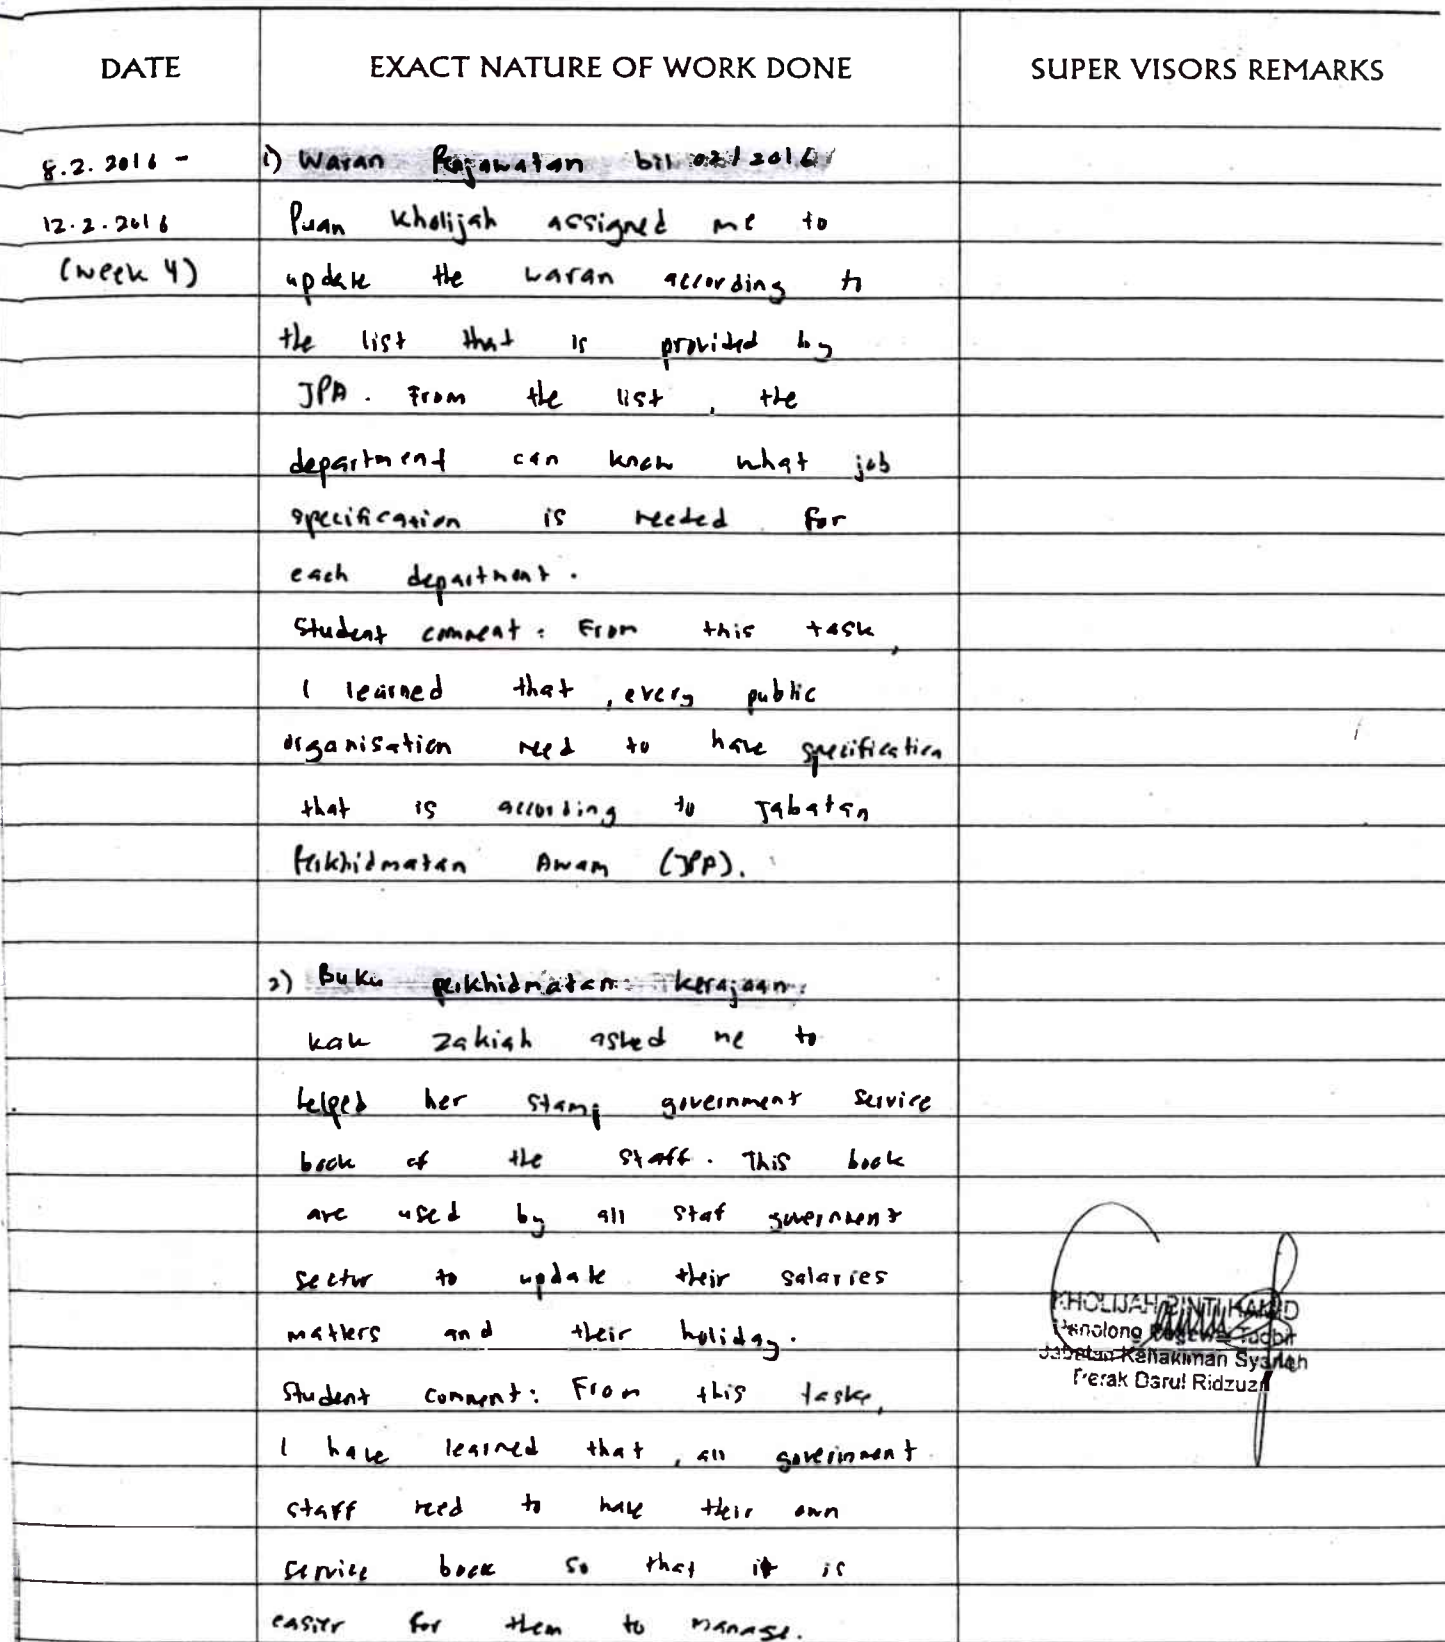 DATE EXACT NATURE OF WORK DONE SUPER VISORS REMARKS
8.2.2016 - 1) Waran Perjawatan bil 02/2016
12.2.2016 Puan Kholijah assigned me to
(week 4) update the waran according to
the list that is provided by
JPA. From the list, the
department can know what job
specification is needed for
each department.
Student comment: From this task,
I learned that, every public
organisation need to have specification
that is according to Jabatan
Perkhidmatan Awam (JPA).
2) Buku perkhidmatan kerajaan.
kak Zakiah asked me to
helped her stamp government service
book of the staff. This book
are used by all staf government
sector to update their salaries
matters and their holiday.
Student comment: From this task,
I have learned that, all government
staff need to have their own
service book so that it is
easier for them to manage.
KHOLIJAH BINTI
Penolong Tadbir
Jabatan Kehakiman Syariah
Perak Darul Ridzuan